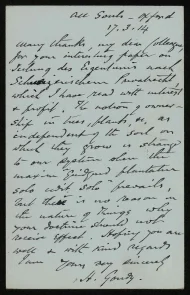 All Souls – Oxford
17.3.14
Many thanks, my dear Colleague,
for your interesting paper on
des Eigentums nach
Schweizerischem Privatrecht
which I have read with interest
& profit. The notion of owner-
ship in trees, plants &c, as
independent of the soil on
which they grow is strange
to our system where the
maxim Quidquid plantatur
solo cedit solo prevails,
but there is no reason in
the nature of things why
your doctrine should not
receive effect. Hoping you are
well & with kind regards
I am Yours very sincerely
H. Goudy.